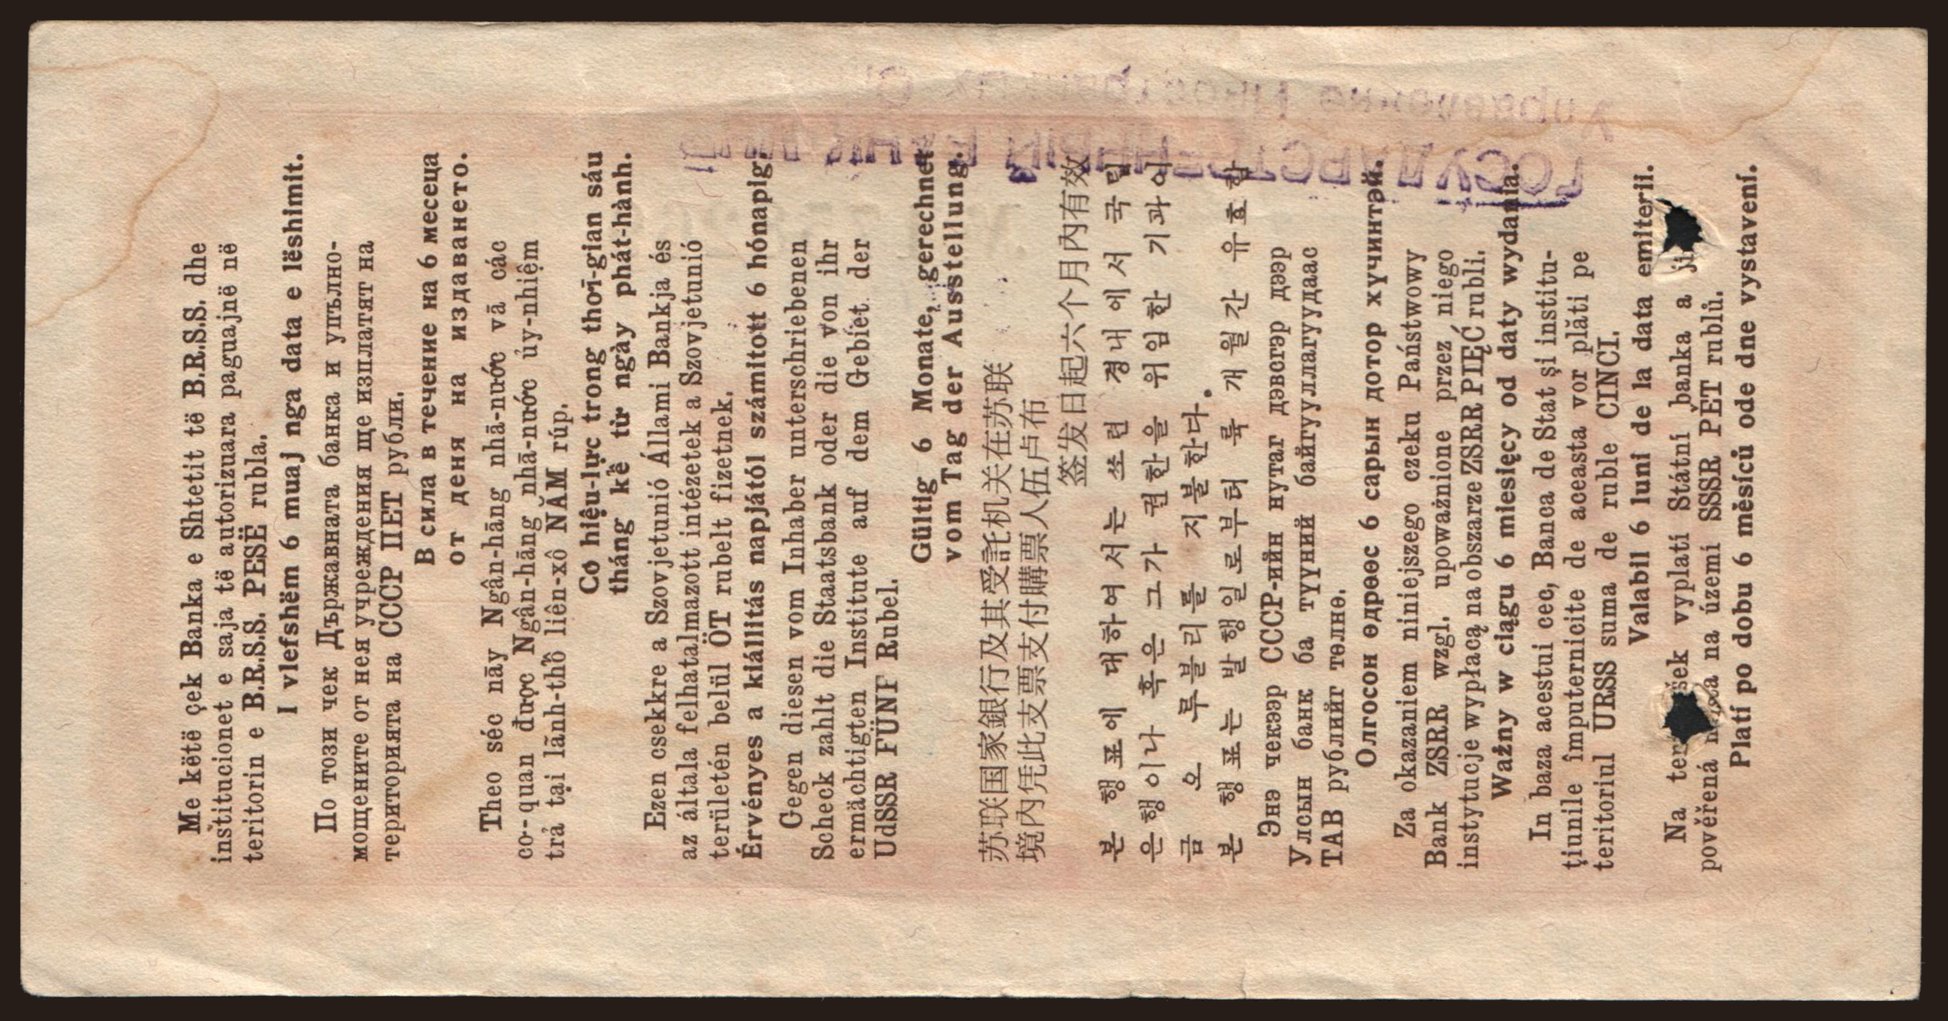 Me këtë çek Banka e Shtetit të B.R.S.S. dhe
institucionet e saja të autorizuara paguajnë në
teritorin e B.R.S.S. PESË rubla.
I vlefshëm 6 muaj nga data e lëshimit.
По този чек Държавната банка и упълно-
мощените от нея учреждения ще изплатят на
територията на СССР ПЕТ рубли.
В сила в течение на 6 месеца
от деня на издаването.
Theo séc nāy Ngân-hāng nhā-nước vā các
cơ-quan được Ngân-hāng nhā-nước ủy-nhiệm
trả tại lãnh-thổ liên-xô NĂM rúp.
Có hiệu-lực trong thời-gian sáu
tháng kể từ ngày phát-hành.
Ezen csekkre a Szovjetunió Állami Bankja és
az általa felhatalmazott intézetek a Szovjetunió
területén belül ÖT rubelt fizetnek.
Érvényes a kiállitás napjától számitott 6 hónapig
Gegen diesen vom Inhaber unterschriebenen
Scheck zahlt die Staatsbank oder die von ihr
ermächtigten Institute auf dem Gebiet der
UdSSR FÜNF Rubel.
Gültig 6 Monate, gerechnet
vom Tag der Ausstellung.
苏联国家銀行及其受託机关在苏联
境內凭此支票支付購票人伍卢布
签发日起六个月內有效
본 행표에 대하여서는 쏘련 경내에서 국립
은행이나 혹은 그가 권한을 위임한 기과이
금 오 루블리를 지불한다.
본 행표는 발행일로부터 륙 개월간 유효함
Энэ чекээр СССР-ийн нутаг дэвсгэр дээр
Улсын банк ба түүний байгууллагуудаас
ТАВ рублийг төлнө.
Олгосон өдрөөс 6 сарын дотор хүчинтэй.
Za okazaniem niniejszego czeku Państwowy
Bank ZSRR wzgl. upoważnione przez niego
instytucje wypłacą na obszarze ZSRR PIĘĆ rubli.
Ważny w ciągu 6 miesięcy od daty wydania.
In baza acestui cec, Banca de Stat şi institu-
ţiunile împuternicite de aceasta vor plăti pe
teritoriul URSS suma de ruble CINCI.
Valabil 6 luni de la data emiterii.
Na šek vyplatí Státní banka a
pověřená na území SSSR PĚT rublů.
Platí po dobu 6 měsíců ode dne vystavení.
ГОСУДАРСТВЕННЫЙ БАНК